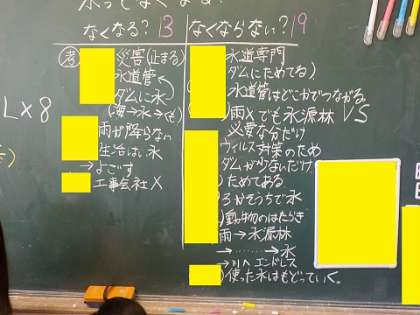 水ってなくなる?
なくなる? 13
考 災害(止まる)
水道管
ダムに水
(海→水→ぐ)
雨が降らない
生活は水
→よごす
工事会社X
なくならない? 19
水道専門
ダムにためてる)
水道管はどこかでつながる
)雨Xでも水源林
必要な分だけ
ウィルス対策のため
ダムが少ないだけ
)ためてある
ろかそうちで水
)動植物のはたらき
雨→水源林
→………→水
→川へ エンドレス
)使った水はもどっていく。
VS
L×8